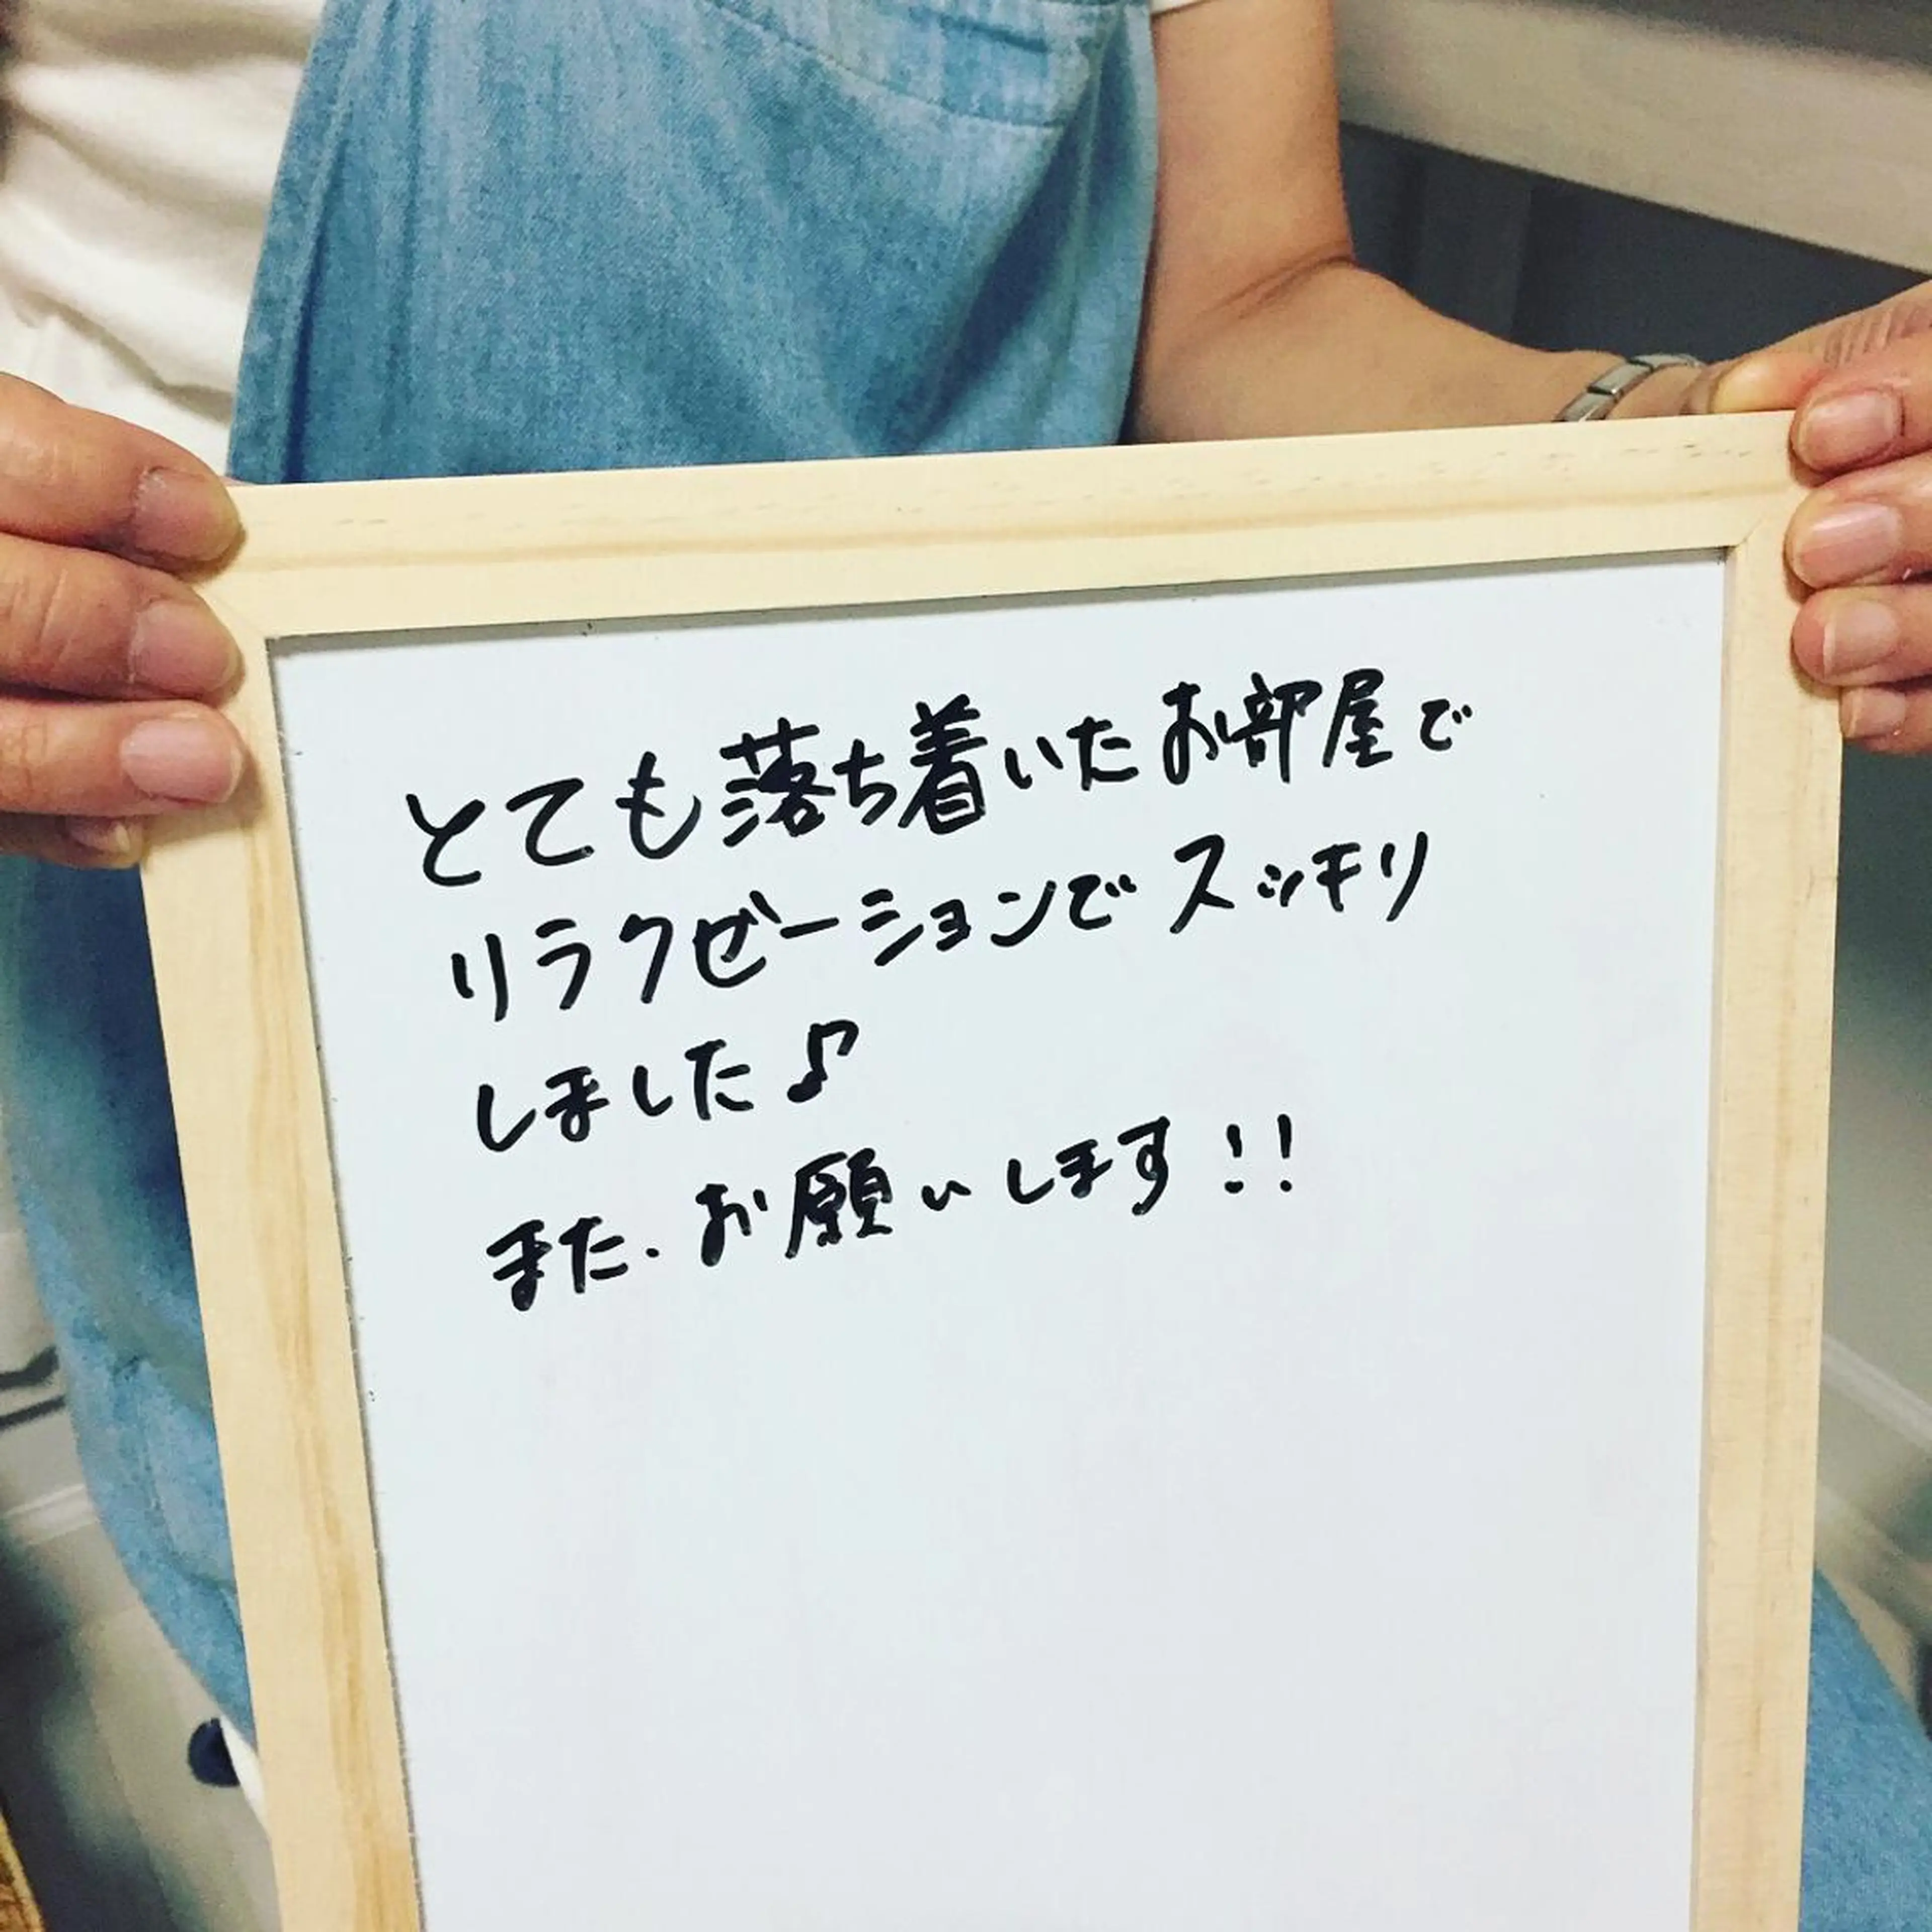 とても落ち着いたお部屋で
リラクゼーションでスッキリ
しました♪
また、お願いします!!